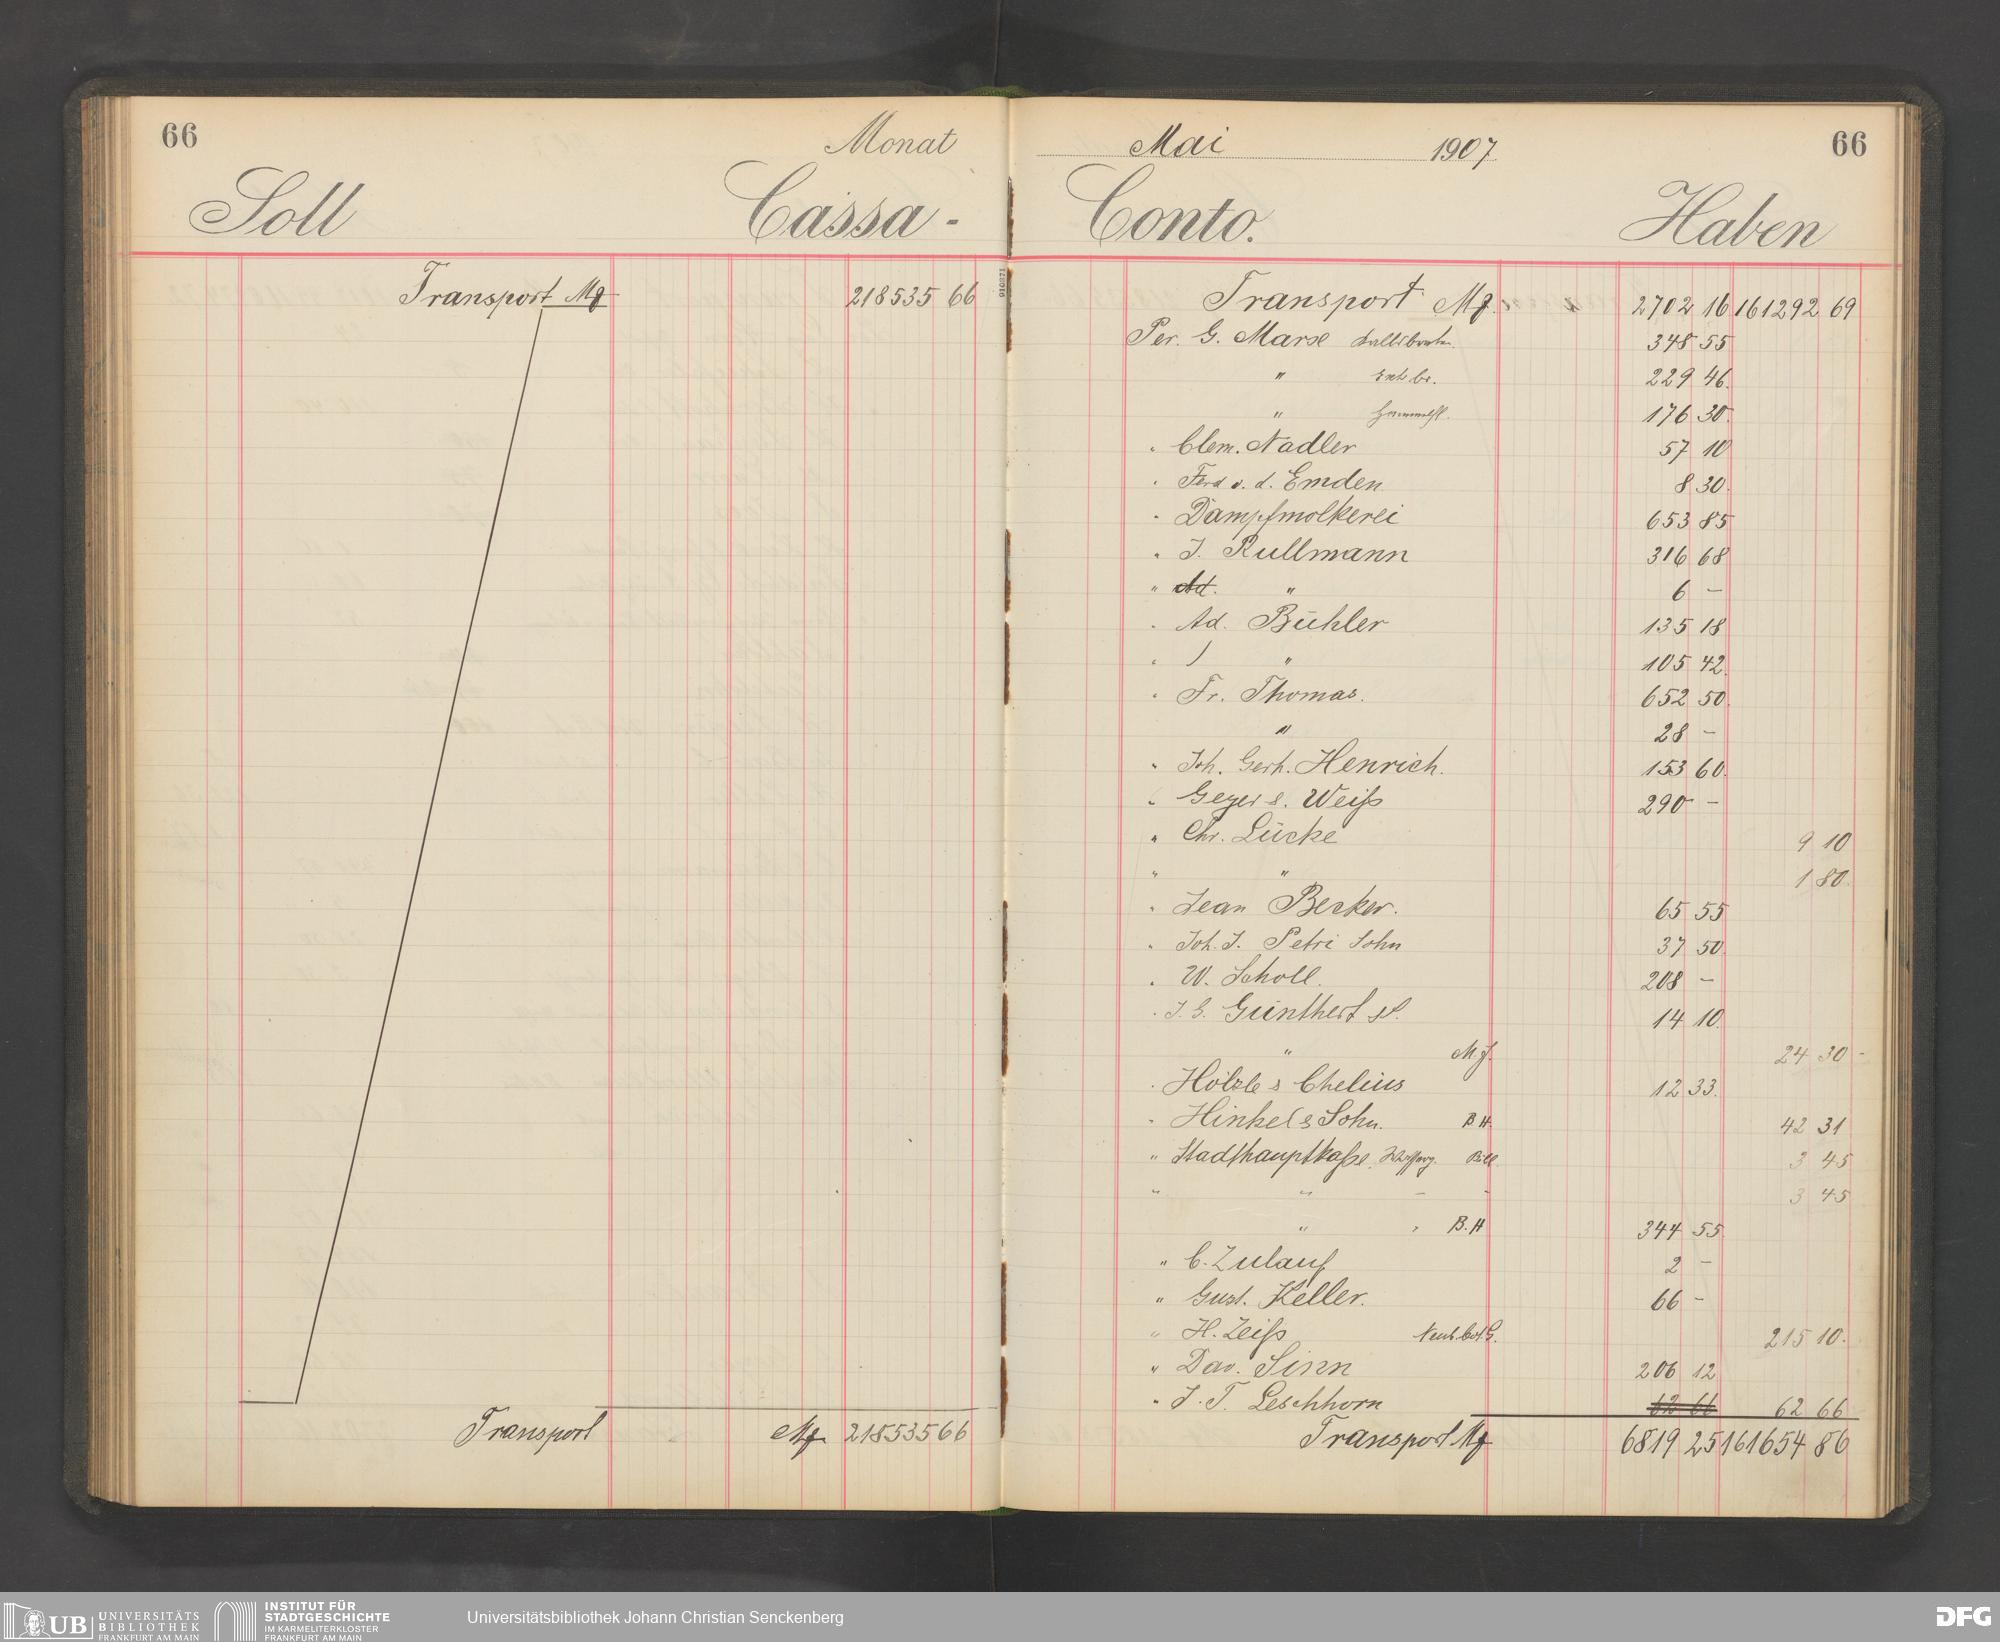 66 Monat
Soll Cassa-
Transport Mg 218535 66
Transport Mg 218535 66
Mai 1907 66
Conto. Haben
Transport Mg. 2702 16 161292 69
Per. G. Marx 348 55
" 229 46.
" Hammelfl. 176 30.
" Clem. Nadler 57 10
" Ferd v. d. Emden 8 30.
" Dampfmolkerei 653 85
" J. Rullmann 316 68
" Ad. " 6 —
" Ad. Bühler 135 18
" / " 105 42
" Fr. Thomas. 652 50
" 28 —
" Joh. Gerh. Henrich. 153 60.
" Geyer & Weiß 290 —
" Chr. Lücke 9 10
" " 1 80.
" Jean Becker. 65 55
" Joh. J. Petri Sohn 37 50.
" W. Scholl. 208 —
" J. G. Günthert sl. 14 10.
" M. f. 24 30 -
" Hölzle & Chelius 12 33.
" Hinkel & Sohn. B H. 42 31
" Stadthauptkasse. Bill. 3 45
" " — " 3 45
" " B. H 344 55
" C. Zulauf 2 —
" Gust. Keller. 66 —
" H. Zeiß 215 10.
" Dav. Sinn 206 12
" J. T. Leschhorn 62 66 62 66
Transport Mg 6819 25 161654 86
910871
UB UNIVERSITÄTS
BIBLIOTHEK
FRANKFURT AM MAIN
INSTITUT FÜR
STADTGESCHICHTE
IM KARMELITERKLOSTER
FRANKFURT AM MAIN
Universitätsbibliothek Johann Christian Senckenberg
DFG